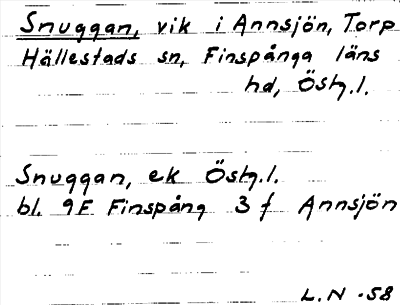 Snuggan, vik i Annsjön, Torp
Hällestads sn, Finspånga läns
hd, Östg.l.
Snuggan, ek Östg.l.
bl. 9F Finspång 3 f Annsjön
L.N -58